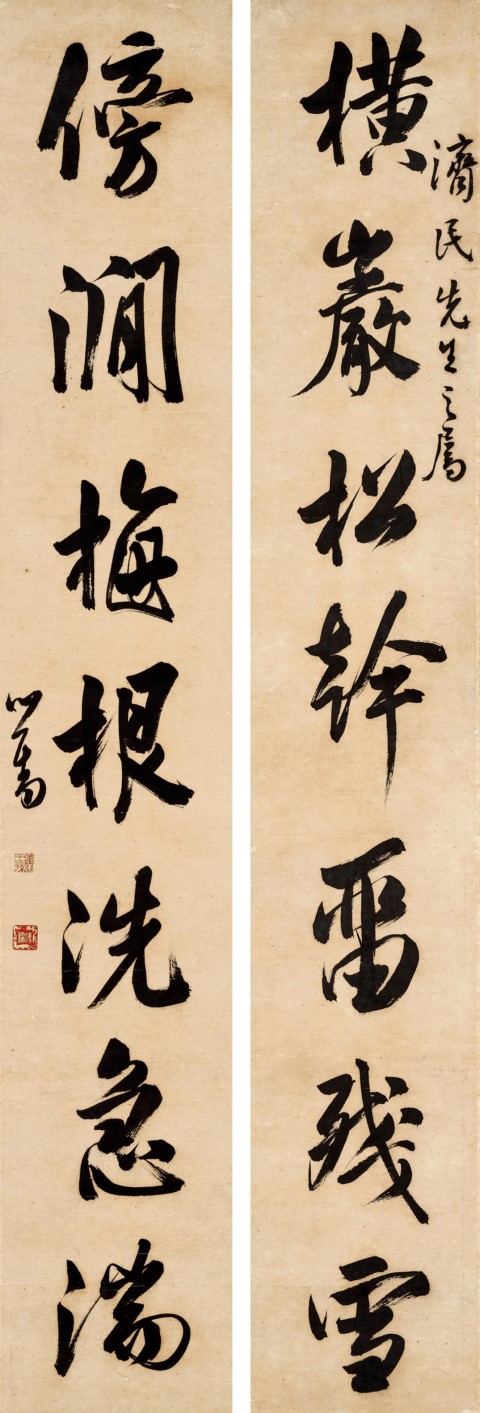 濟民先生之屬
橫巖松幹留殘雪
傍澗梅根洗急湍
心畬